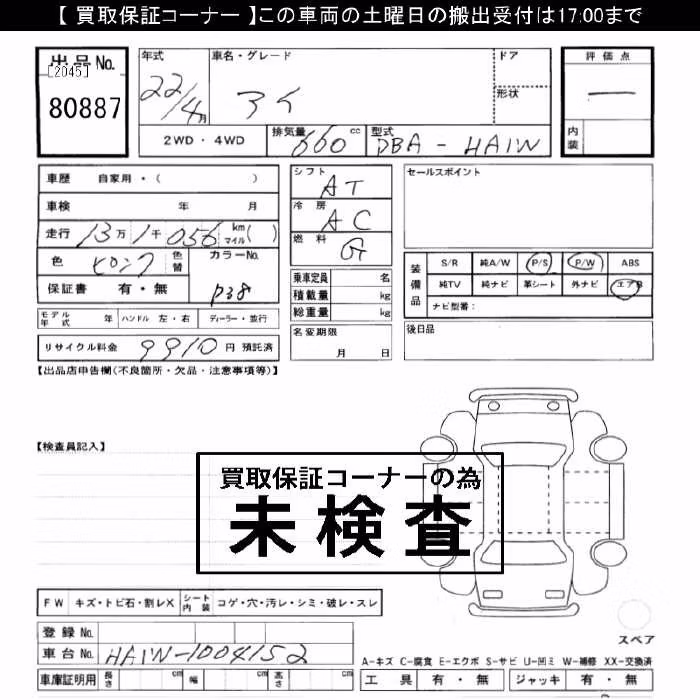 【 買取保証コーナー 】この車両の土曜日の搬出受付は17:00まで
出品No.
[2045]
80887
年式 車名・グレード ドア
22/4月 アイ 形状
2WD・4WD 排気量 660 cc 型式 DBA-HA1W
評価点
—
内装
車歴 自家用・( )
車検 年 月
走行 13万1千056 km マイル( )
色 ピンク 色替 カラーNo.
保証書 有・無 P38
モデル年式 年 ハンドル 左・右 ディーラー・並行
リサイクル料金 9910 円 預託済
シフト AT
冷房 AC
燃料 G
乗車定員 名
積載量 kg
総重量 kg
名変期限
月 日
セールスポイント
装備品
S/R 純A/W P/S P/W ABS
純TV 純ナビ 革シート 外ナビ エアB
ナビ型番:
後日品
【出品店申告欄(不良箇所・欠品・注意事項等)】
【検査員記入】
買取保証コーナーの為
未検査
FW キズ・トビ石・割レX シート内装 コゲ・穴・汚レ・シミ・破レ・スレ
登録No.
車台No. HA1W-1004152
車庫証明用 長さ cm 幅 cm 高さ cm
スペア
A-キズ C-腐食 E-エクボ S-サビ U-凹ミ W-補修 XX-交換済
工具 有・無 ジャッキ 有・無